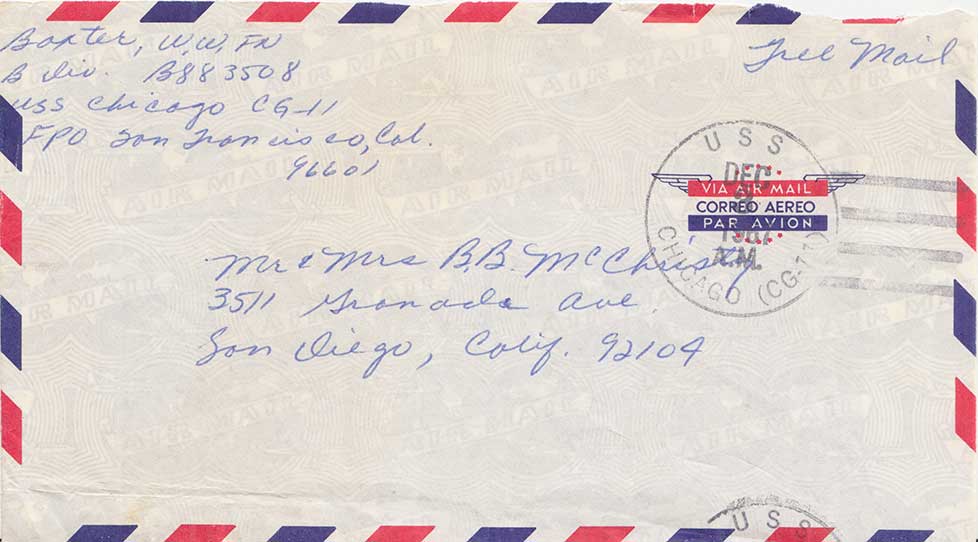 Baxter, W.W, FN
B Div. B883508
USS Chicago CG-11
FPO San Francisco, Cal.
96601
Free Mail
USS
DEC
1967
A.M.
CHICAGO (CG-11)
VIA AIR MAIL
CORREO AEREO
PAR AVION
Mr & Mrs B.B. McChristy
3511 Granada Ave
San Diego, Calif. 92104
USS
AIR MAIL